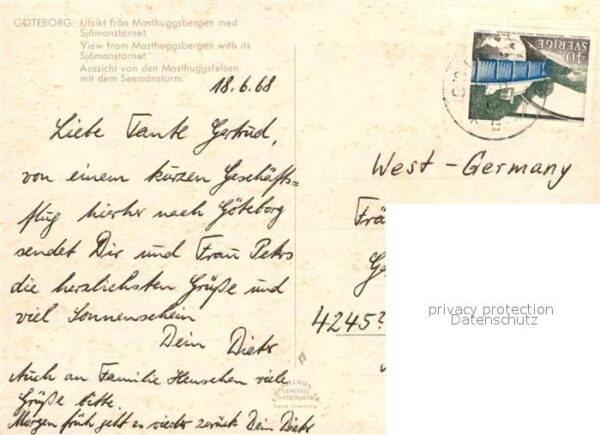 GÖTEBORG: Utsikt från Masthuggsbergen med
Sjömanstornet.
View from Masthuggsbergen with its
Sjömanstornet.
Aussicht van den Masthuggsfelsen
mit dem Seemansturm.
18.6.68
Liebe Tante Gertrud,
von einem kurzen Geschäfts-
flug hierher nach Göteborg
sendet Dir und Frau Petrs
die herzlichsten Grüße und
viel Sonnenschein
Dein Dieter
Auch an Familie Henschen viele
Grüße bitte.
Morgen früh geht es wieder zurück Dein Dieter
40
SVERIGE
West-Germany
Frä
Ge
4245
privacy protection
Datenschutz